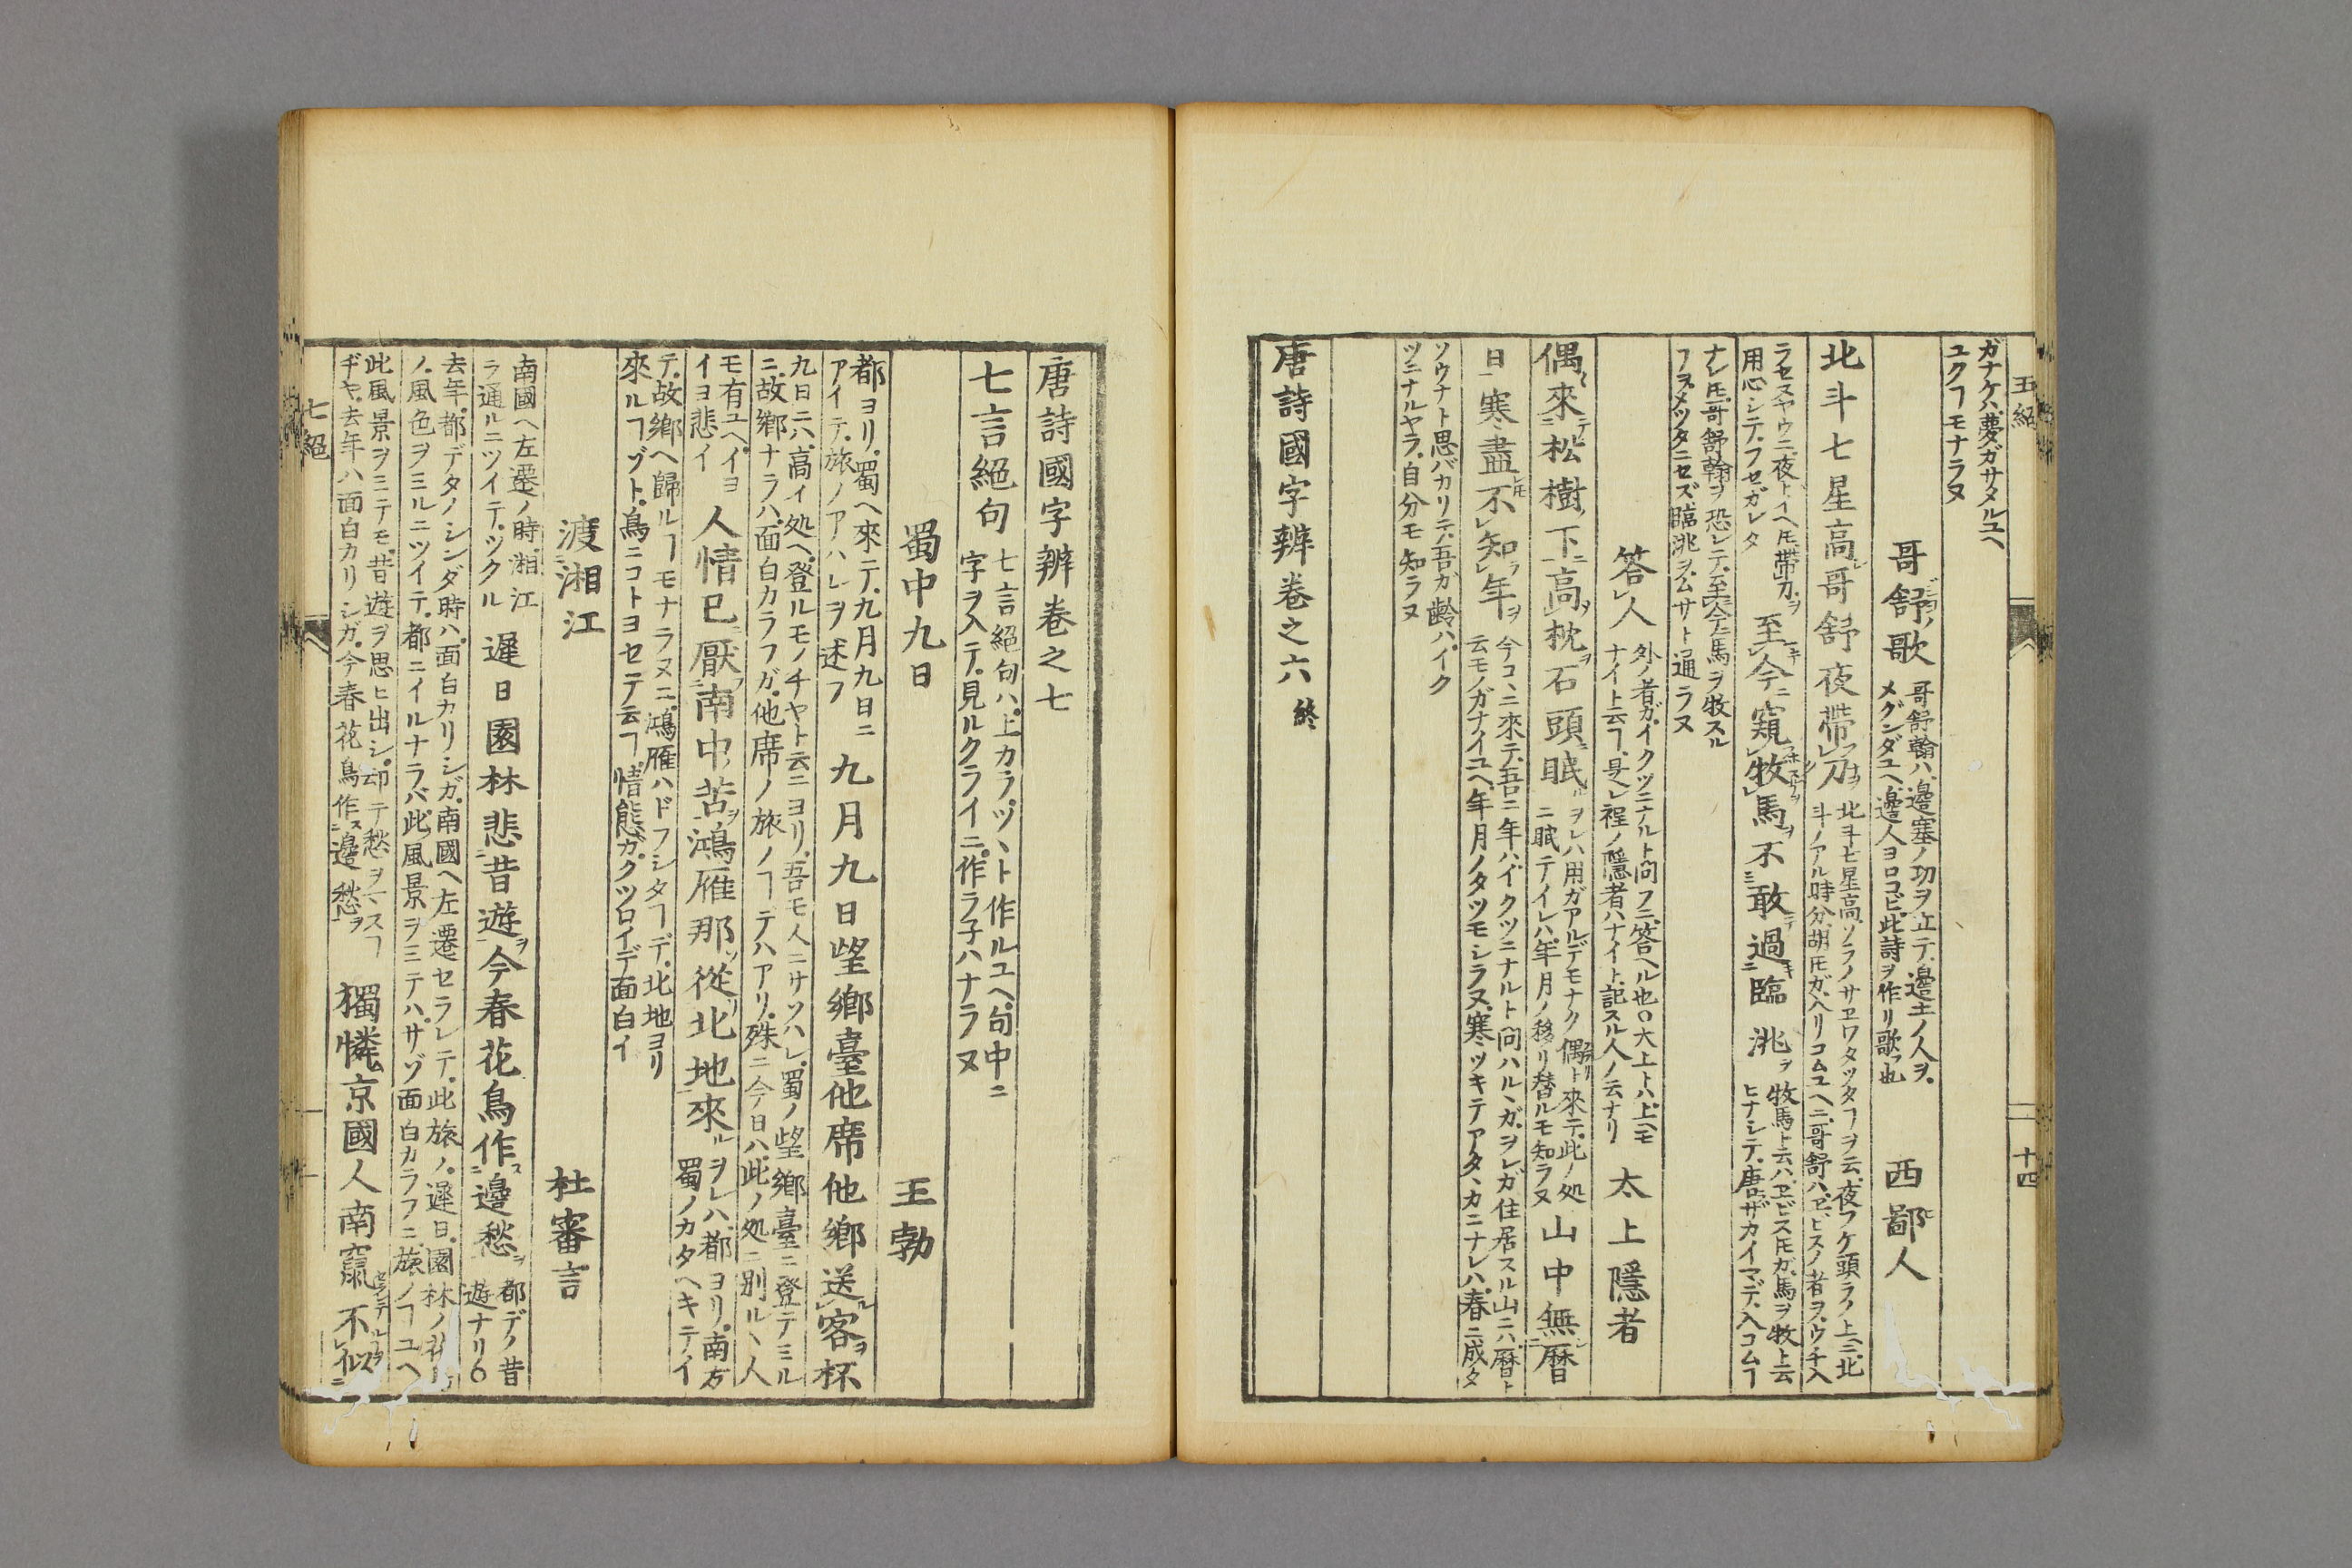 五絕
十四
ガナケハ、夢ガサタルユヘ
ユクヿモナラヌ
哥舒歌
哥舒翰ハ、邊塞ノ功ヲ立テ、邊土ノ人ヲ、
メグンダユヘ、邊人ヨロコビ、此詩ヲ作リ歌フ也
西鄙人
北斗七星高哥舒夜帶刀
北斗七星高、ソラノサエワタッタヿヲ云、夜フケ頭ラノ上ニ、北
斗ノアル時分、胡𪜈ガ、ハリコムユヘニ、哥舒ハ、エビスノ者ヲ、ウチ入
ラセヌヤウニ、夜トイヘ𪜈、帶刀ヲ
用心シテ、フセガレタ
至今窺牧馬不敢過臨洮
牧馬ト云ハ、エビス𪜈ガ、馬ヲ牧ト云
ヒナシテ、唐ザカイマデ、入コムヿ
ナレ𪜈、哥舒翰ヲ恐レテ、至今馬ヲ牧スル
ヿヲ、メッタニセズ、臨洮ヲ、ムサト通ラヌ
答人
外ノ者ガ、イクツニナルト問フニ、答ヘル也○大上トハ、上ヘモ
ナイト云ヿ、是レ程ノ隱者ハナイト、記スル人ノ云ナリ
太上隱者
偶來松樹下高枕石頭眠
ヲレハ用ガアルデモナク偶ト來テ、此ノ処
ニ眠テイレハ、年月ノ移リ替ルモ知ラヌ
山中無曆
日寒盡不知年
今コヽニ來テ、吾ニ年ハ、イクツニナルト問ハルヽガ、ヲレガ住居スル山ニハ、曆ト
云モノガナイユヘ、年月ノタツモシラヌ、寒ツキテアタヽカニナレハ、春ニ成タ
ソウナト思バカリニテ、吾ガ齡ハ、イク
ツニナルヤラ、自分モ知ラヌ
唐詩國字辨卷之六 終
唐詩國字辨卷之七
七言絕句
七言絕句ハ、上カラ、ヅヽト作ルユヘ、句中ニ
字ヲ入テ、見ルクライニ、作ラ子ハナラヌ
蜀中九日
王勃
都ヨリ、蜀ヘ來テ、九月九日ニ
アイテ、旅ノアハレヲ述フ
九月九日望鄉臺他席他鄉送客杯
九日ニハ、高イ処ヘ、登ルモノヂヤト云ニヨリ、吾モ人ニサソハレ、蜀ノ望鄉臺ニ登テミル
ニ、故鄉ナラハ、面白カラフガ、他席ノ旅ノヿテハアリ、殊ニ今日ハ、此ノ処ニ別ルヽ人
モ有ユヘ、イヨ
イヨ悲イ
人情已厭南中苦鴻雁那從北地來
ヲレハ、都ヨリ、南方
蜀ノカタヘキテイ
テ、故鄉ヘ歸ルヿモナラヌニ、鴻雁ハドフシタヿデ、北地ヨリ
來ルヿゾト、鳥ニコトヨセテ云ヿ、情態ガ、クツロイデ面白イ
渡湘江
杜審言
南國ヘ左遷ノ時、湘江
ヲ通ルニツイテ、ツクル
遲日園林悲昔遊今春花鳥作邊愁
都デノ昔
遊ナリ○
去年、都デタノシンダ時ハ、面白カリシガ、南國ヘ左遷セラレテ、此旅ノ、遲日、園林ノ
ノ、風色ヲミルニツイテ、都ニイルナラバ、此風景ヲミテハ、サゾ面白カラフニ、旅ノヿユヘ
此風景ヲミテモ、昔遊ヲ思ヒ出シ、却テ愁ヲマスヿ
ヂヤ、去年ハ面白カリシガ、今春花鳥作邊愁
獨憐京國人南竄不
七絕